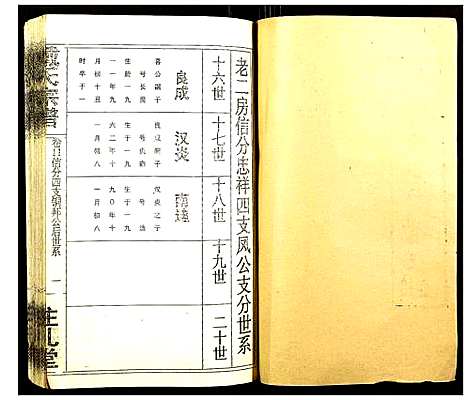 老二房信分忠祥四支凤公支分世系
十六世
十七世
十八世
十九世
二十世
良成
喜公嗣子
生於一九
一一年九
月初十丑
时卒于一
汉炎
良成嗣子
生于一九
六二年十
一月初八
南遥
汉炎之子
生于一九
九〇年十
一月初八
氏宗谱
信分四支
公后世系
一